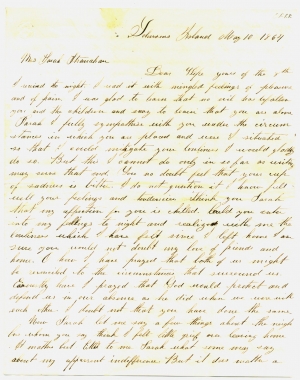 May 10 1864
Mrs Sarah
Dear Wife yours of the 9th
I received to night I read it with mingled feelings of pleasure
and of pain. I was glad to learn that we will
you and the children and sorry to learn that you are alone
Sarah I fully sympathize with you under the circum
stances in which you are placed and were I situated
so that I could mitigate your loneliness I would gladly
do so. But this I cannot do only in so far as writing
may serve that end. You no doubt feel that your cup
of sadness is bitter I do not question it I know full
well your feelings and think you Sarah
that my affection for you is chilled. Could you enter
into my feelings to night and realize with me the
loneliness which I have felt since I left home I am
sure you would not doubt my love of friends and
home. I know I have prayed that both of us might
be reconciled to the circumstances that surround us
have I prayed that God would protect and
defend us in our absence as he did when we were with
each other I doubt not that you have done the same.
Now Sarah let me say a few things about the
for whom you think I felt
no matter but let me Sarah what some may say
about my apparent indifference. But it was rather a